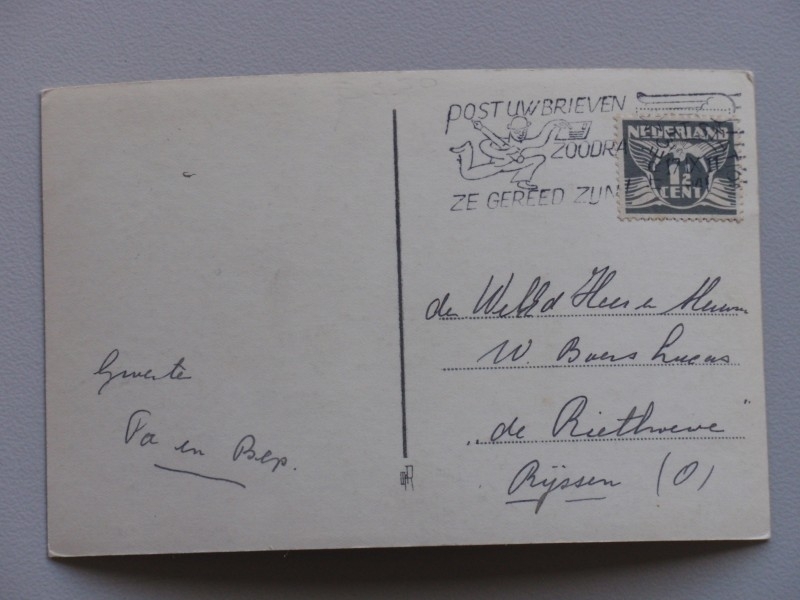 POST UW BRIEVEN
ZOODRA
ZE GEREED ZIJN
NEDERLAND
1½
CENT
den WelEd Heer en Mevrouw
W. Boers Lucas
„de Riethoeve"
Rijssen (O)
Groeten
Pa en Bep.